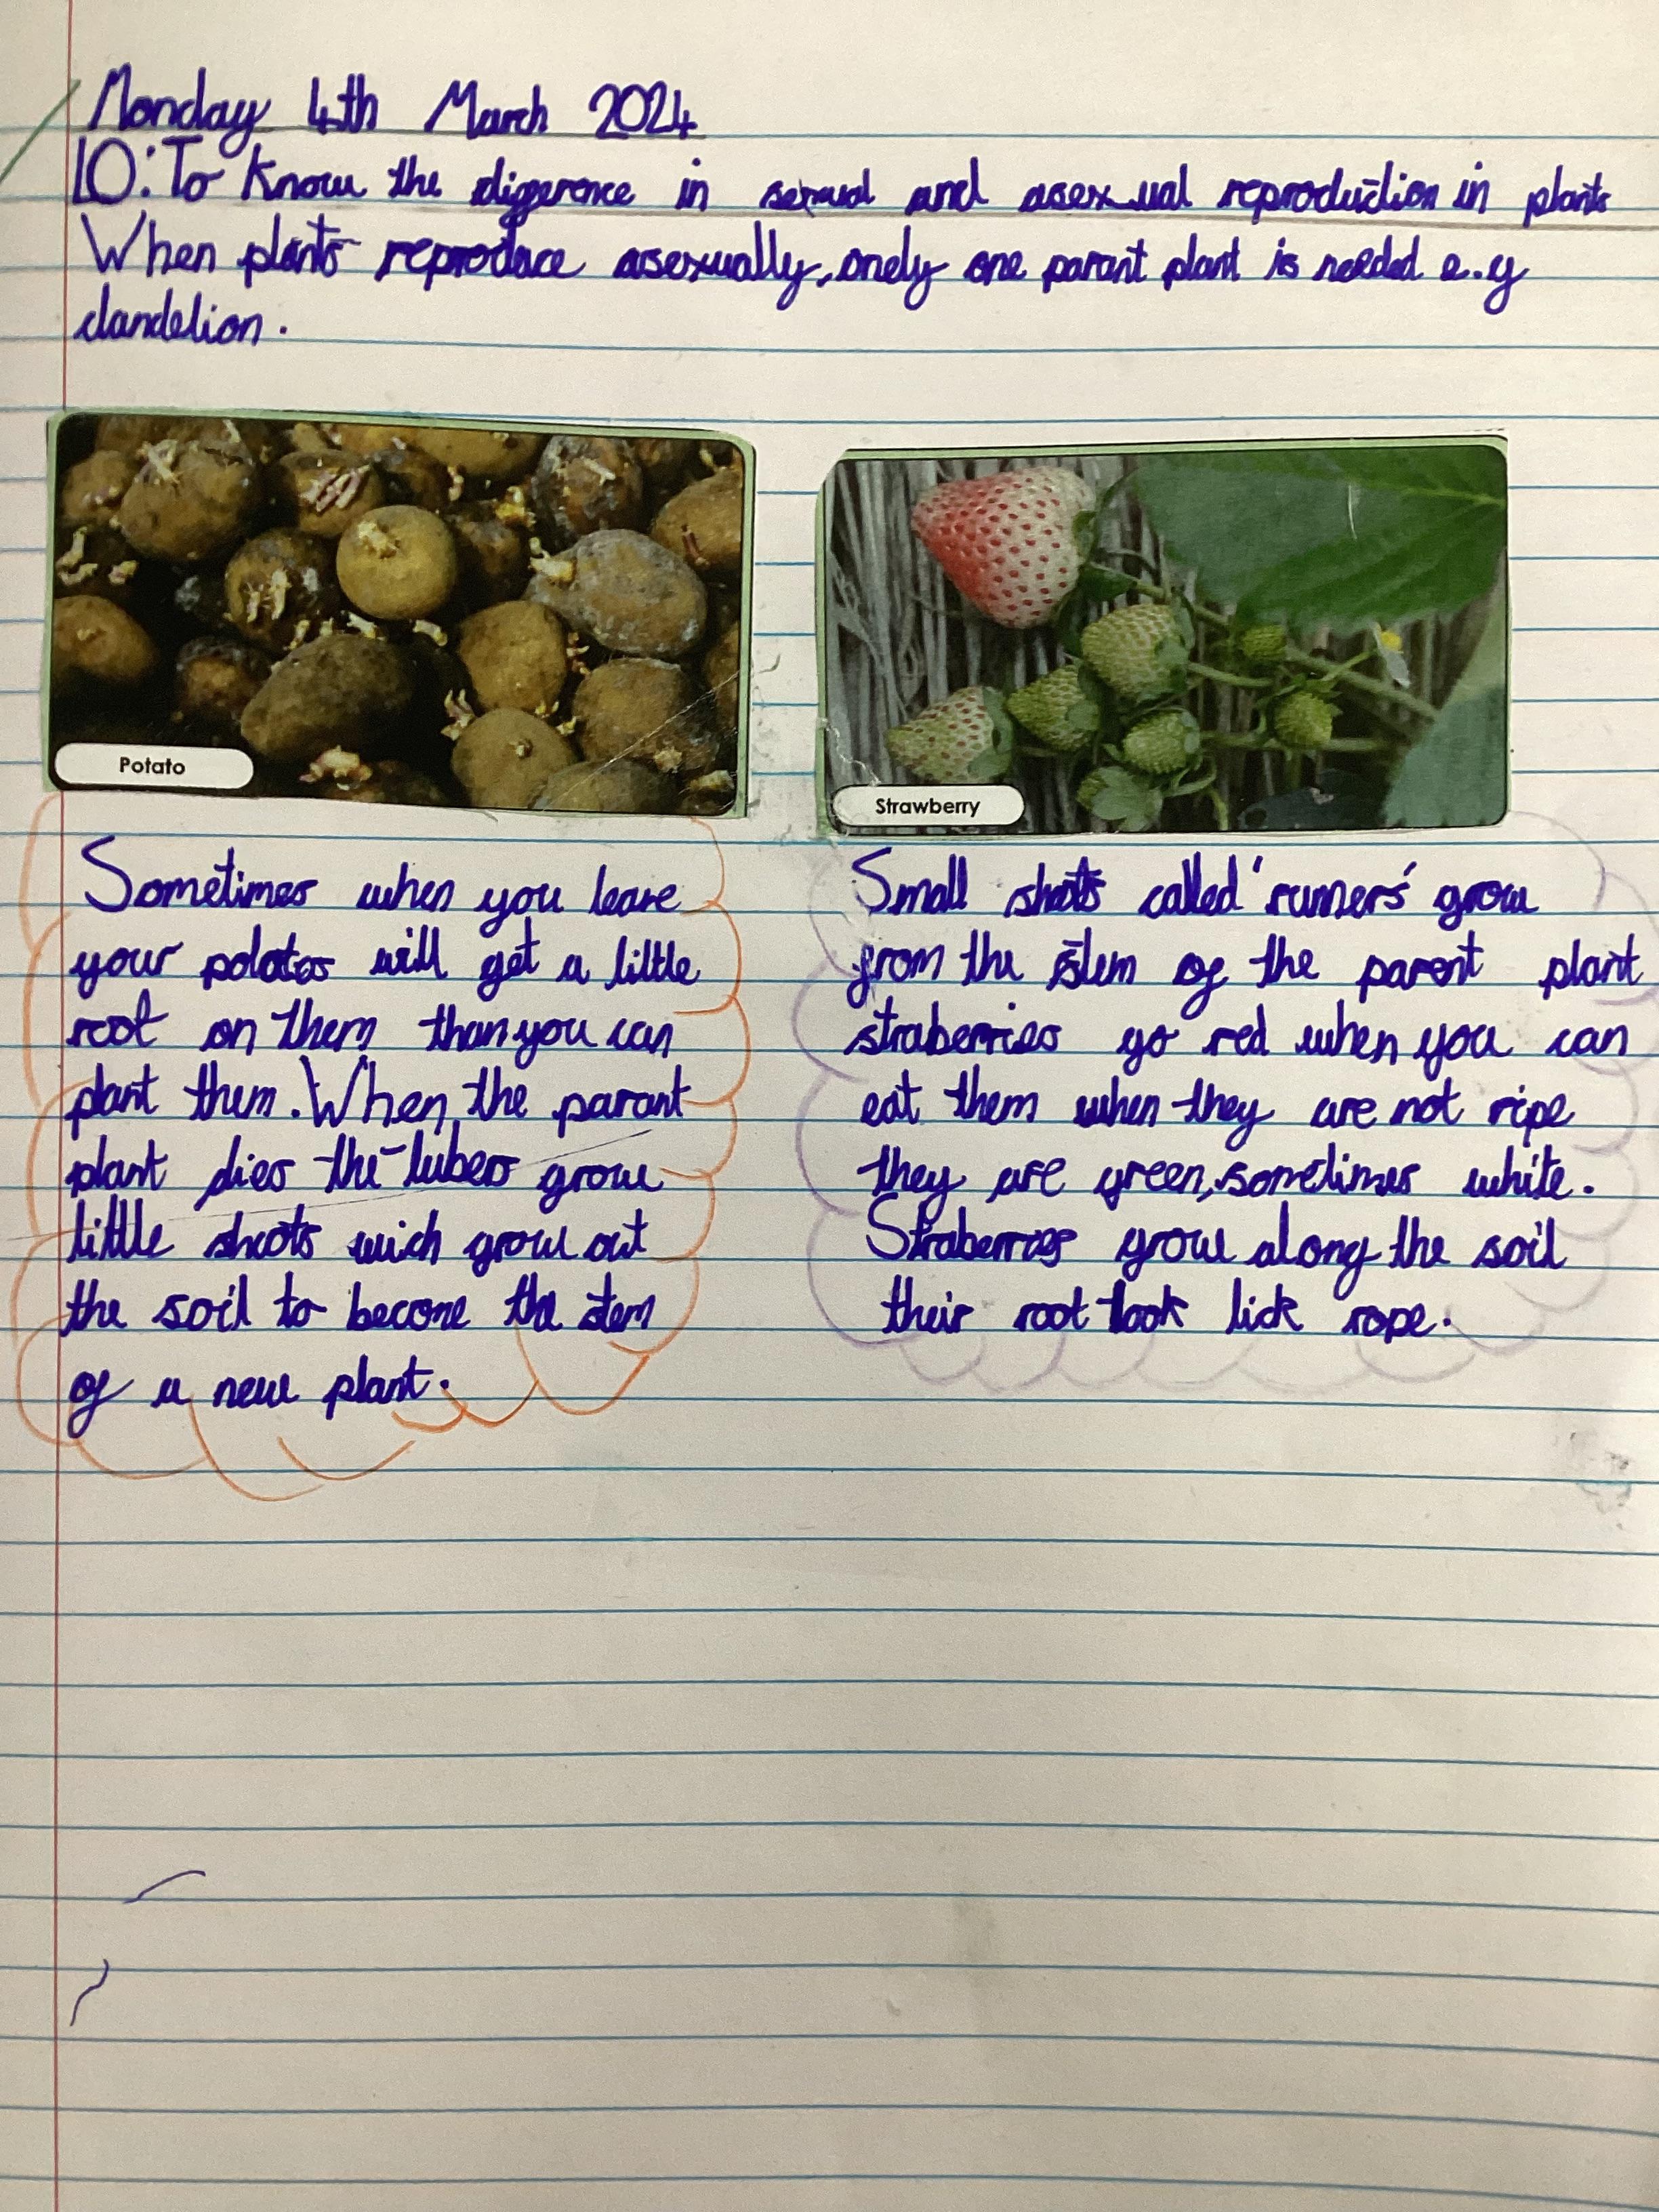 Monday 4th March 2024
LO: To Know the diference in sexual and asexual reproduction in plants
When plants reproduce asexually, onely one parant plant is needed e.g
dandelion.
Potato
Strawberry
Sometimes when you leave
your potatos will get a little
root on them than you can
plant them. When the parant
plant dies the tubers grow
little shoots wich grow out
the soil to become the stem
of a new plant.
Small shoots called 'runners' grow
from the stem of the parent plant
straberries go red when you can
eat them when they are not ripe
they are green, sometimes white.
Straberries grow along the soil
their root look lick rope.